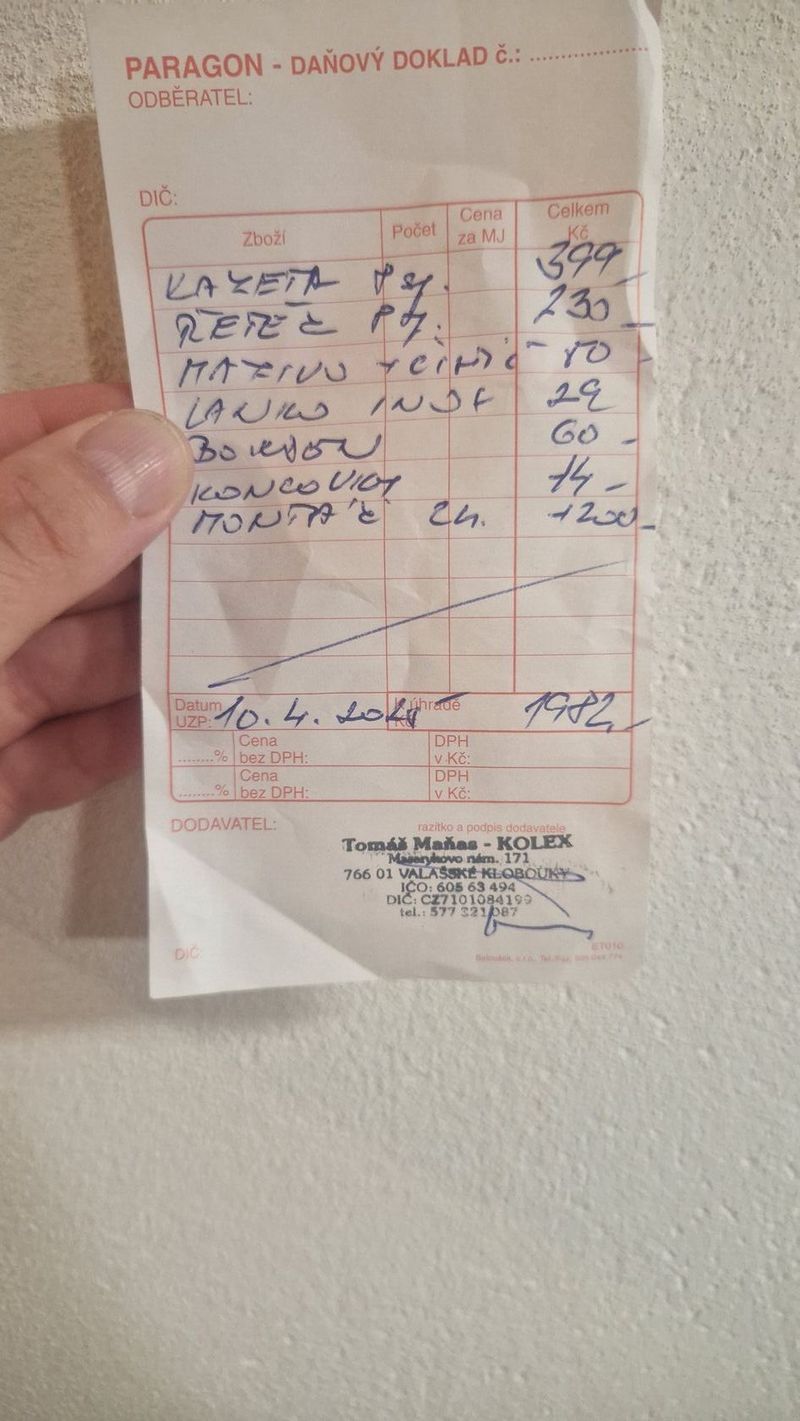 PARAGON - DAŇOVÝ DOKLAD č.:
ODBĚRATEL:
DIČ:
Zboží Počet Cena za MJ Celkem Kč
KAZETA 399
ŘETĚZ 230
MAZIVO
LANKO 29
BOWDEN 60
KONCOVKY 14
MONTÁŽ 2h. 1200
Datum UZP: 10. 4. K úhradě Kč 1982
........% Cena bez DPH: DPH v Kč:
........% Cena bez DPH: DPH v Kč:
DODAVATEL: razítko a podpis dodavatele
Tomáš Maňas - KOLEX
Masarykovo nám. 171
766 01 VALAŠSKÉ KLOBOUKY
IČO: 605 63 494
DIČ: CZ7101084199
tel.: 577 321 087
DIČ:
ET010